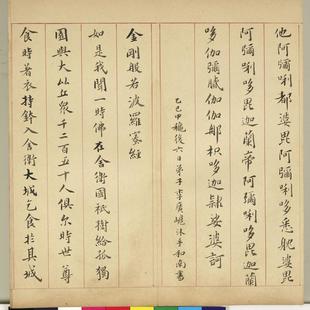 他阿彌唎都婆毘阿彌唎哆悉耽婆毘
阿彌唎哆毘迦蘭帝阿彌唎哆毘迦蘭
哆伽彌膩伽伽那枳哆迦隸娑婆訶
金剛般若波羅蜜經
如是我聞一時佛在舍衛國祇樹給孤獨
園與大比丘眾千二百五十人俱爾時世尊
食時著衣持鉢入舍衛大城乞食於其城